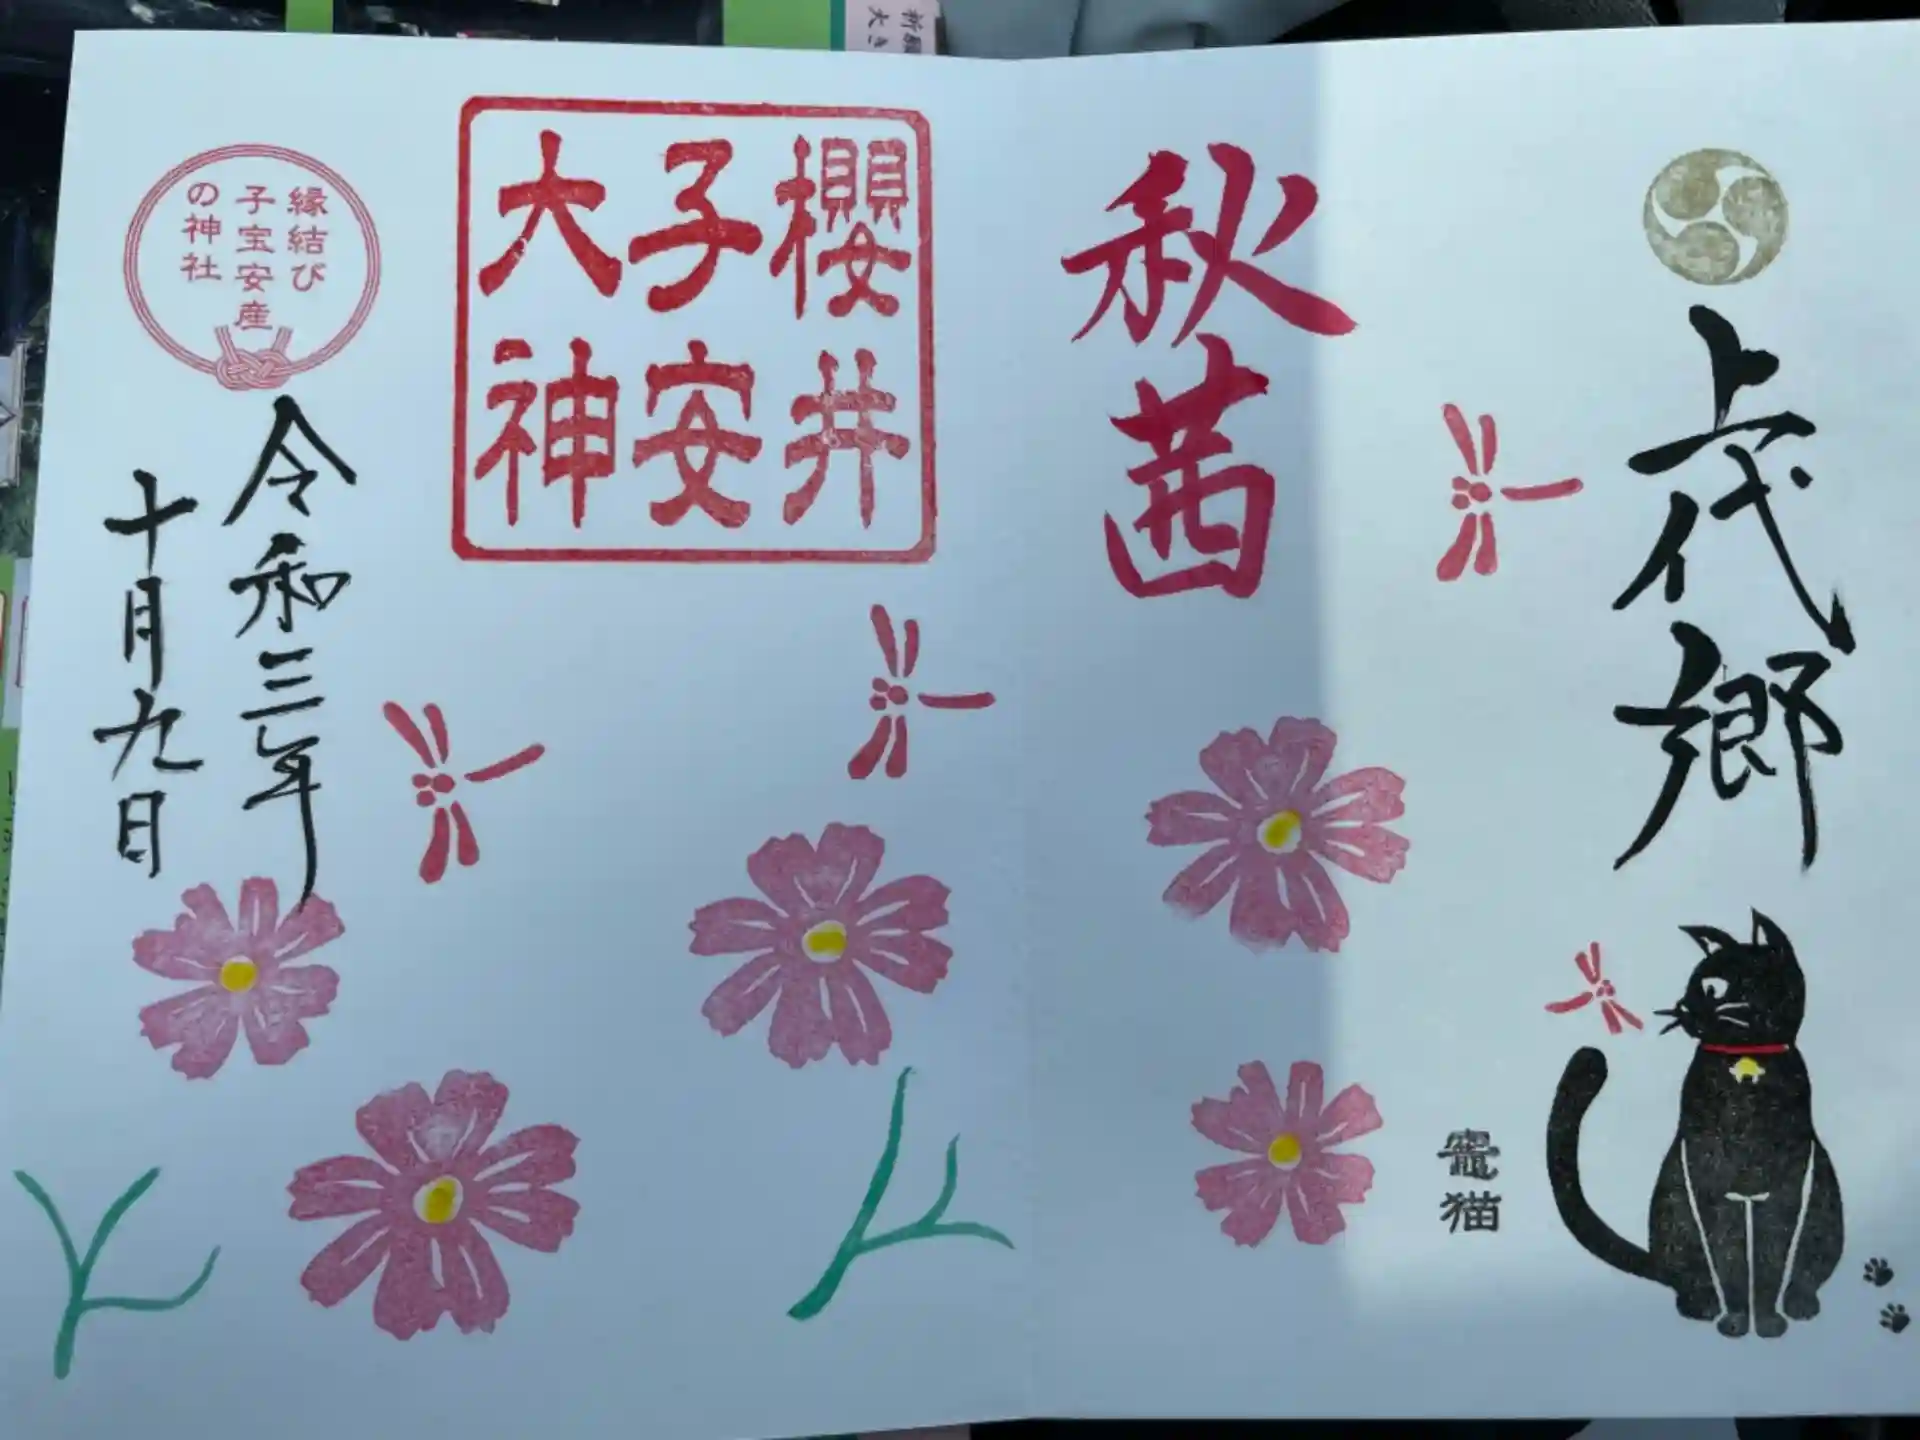 上代郷
竈猫
秋茜
櫻井
子安
大神
縁結び
子宝安産
の神社
令和三年
十月九日